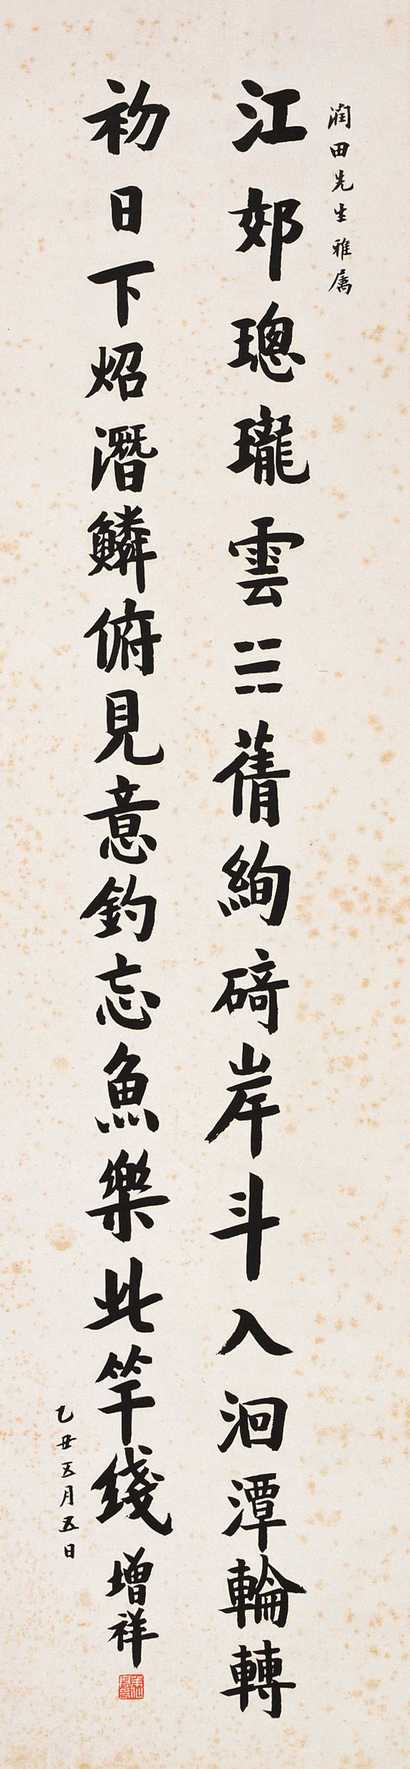 潤田先生雅屬
江郊璁瓏雲☵蒨絢碕岸斗入洄潭輪轉
初日下炤潛鱗俯見意釣忘魚樂此竿綫增祥
乙丑五月五日